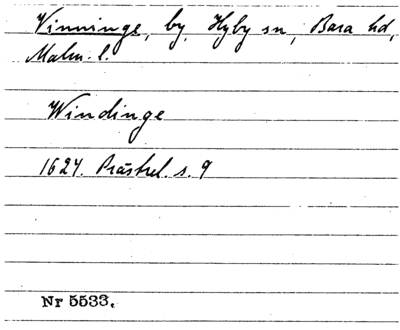 Vinninge, by, Hyby sn, Bara hd,
Malm. l.
Windinge
1624. Prästrel. s. 9
Nr 5533.